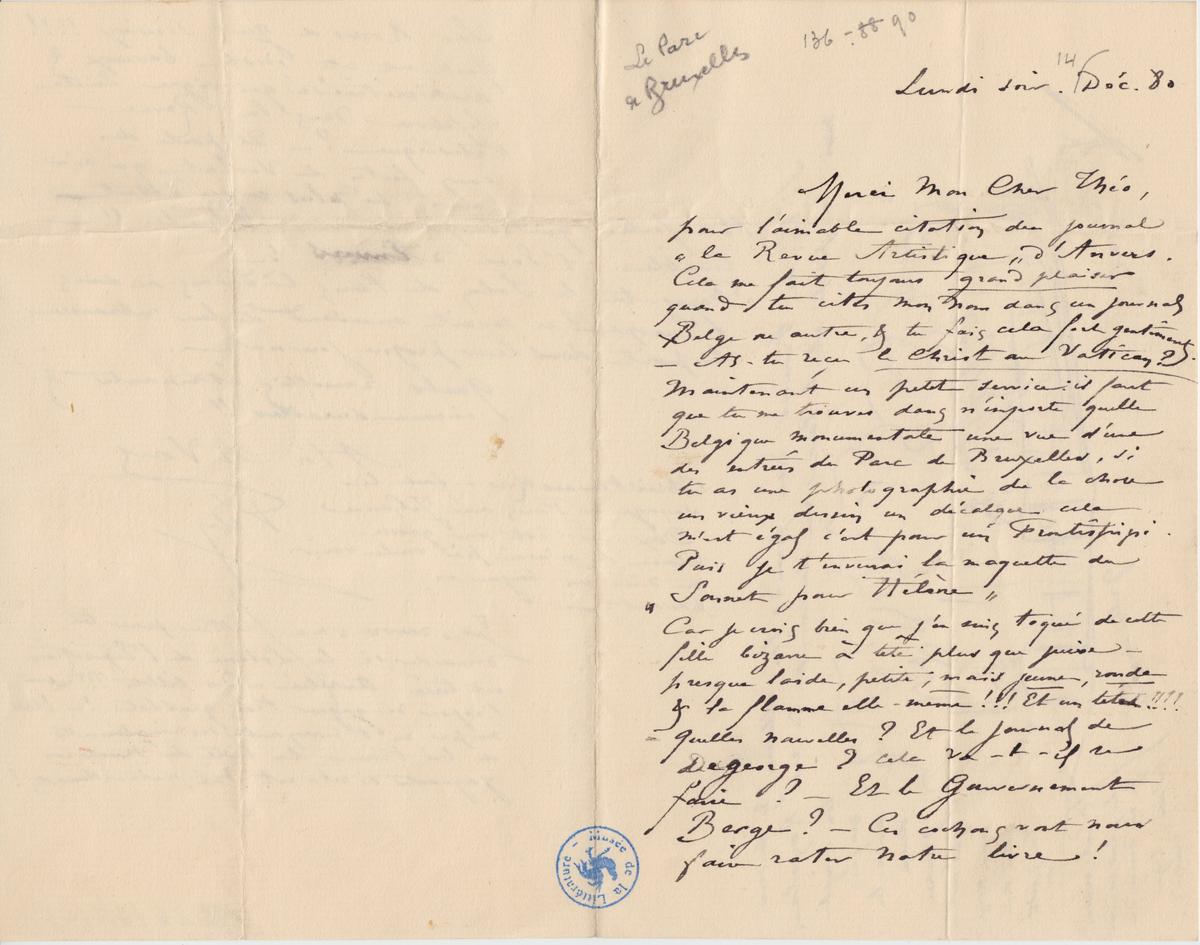 Le Parc
de Bruxelles
136-88 90
14
Lundi soir. Déc. 80
Merci Mon Cher Théo,
pour l'aimable citation du journal
" la Revue Artistique „ d'Anvers.
Cela me fait toujours grand plaisir
quand tu cites mon nom dans un journal
Belge ou autre, & tu fais cela fort gentiment.
— As-tu reçu le Christ au Vatican?
Maintenant un petit service: il faut
que tu me trouves dans n'importe quelle
Belgique monumentale une vue d'une
des entrées du Parc de Bruxelles, si
tu as une photographie de la chose
un vieux dessin un décalque cela
m'est égal c'est pour un Frontispice.
Puis je t'enverrai la maquette du
" Sonnet pour Hélène „
Car je crois bien que j'en suis toqué de cette
fille bizarre à tête plus que juive —
presque laide, petite, mais jeune, ronde
& la flamme elle-même!!! Et un !!!!
— Quelles nouvelles? Et le journal de
Degeorge? cela va-t-il se
faire? — Et le Gouvernement
Berge? — Ces cochons vont nous
faire rater notre livre!
Musée de la Littérature